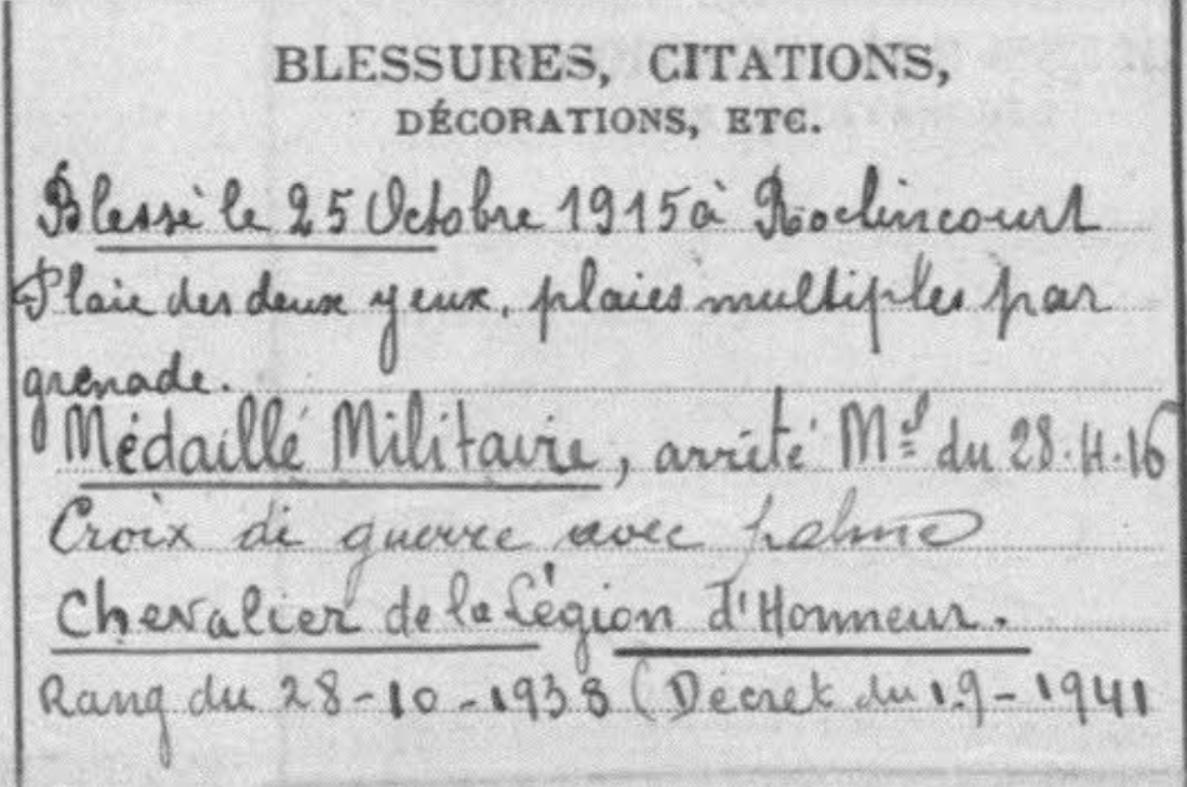 BLESSURES, CITATIONS,
DÉCORATIONS, ETC.
Blessé le 25 Octobre 1915 à Roclincourt
Plaie des deux yeux, plaies multiples par
grenade.
Médaillé Militaire, arrêté Mel du 28.4.16
Croix de guerre avec palme
Chevalier de la Légion d'Honneur.
Rang du 28-10-1938 (Décret du 1.9-1941